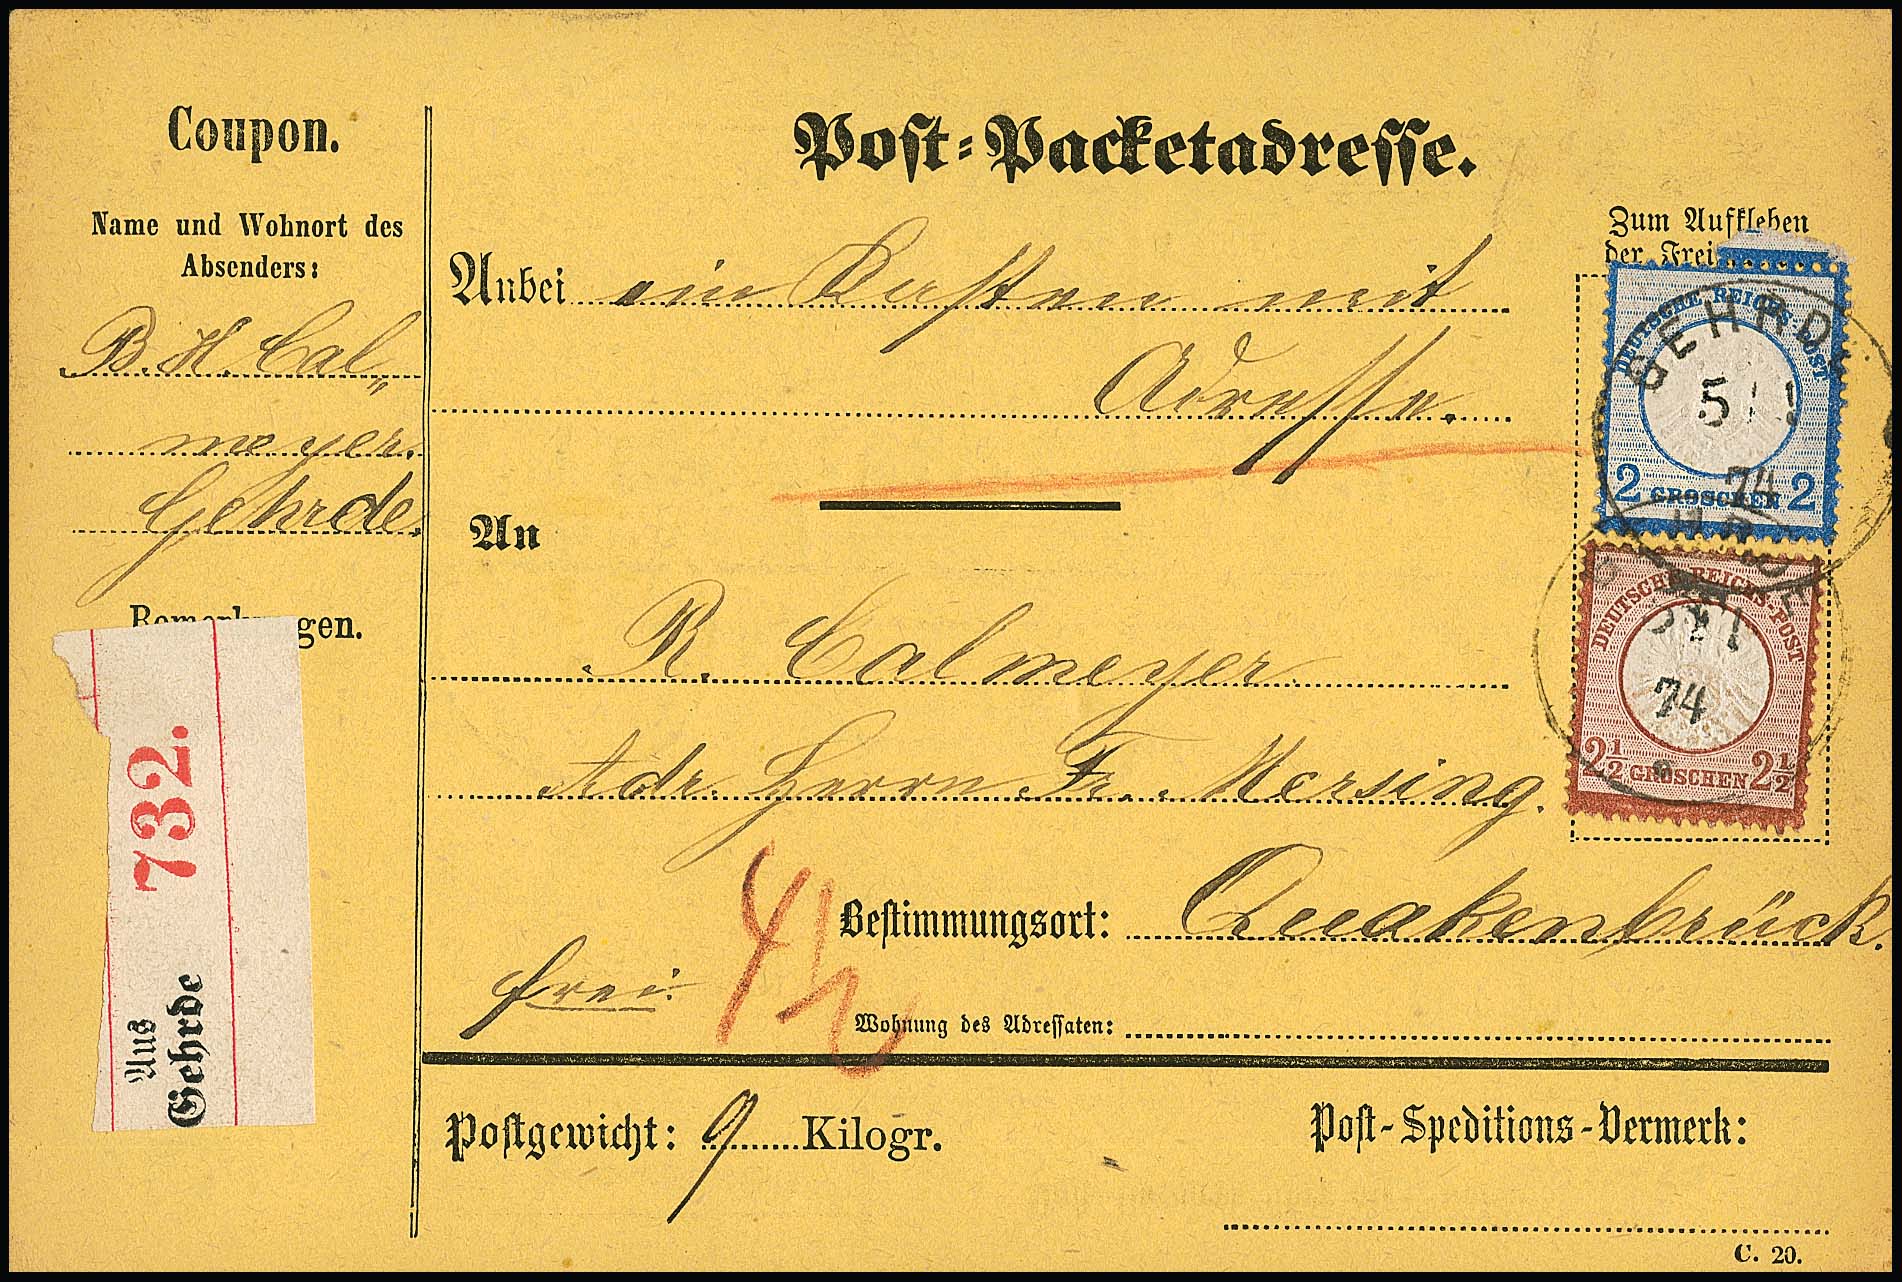 Coupon.
Name und Wohnort des
Absenders:
B. H. Cal=
meyer.
Gehrde.
Bemerkungen.
732.
Aus
Gehrde
Post-Packetadresse.
Zum Aufkleben
der Frei
Anbei ein Kasten mit
Adresse.
An
R. Calmeyer.
Adr. Herrn Fr. Mersing.
Bestimmungsort: Quakenbrück.
frei.
4½
Wohnung des Adressaten:
Postgewicht: 9 Kilogr.
Post-Speditions-Vermerk:
C. 20.
DEUTSCHE REICHS-POST
2 GROSCHEN 2
GEHRDE
5
74
DEUTSCHE REICHS-POST
2½ GROSCHEN 2½
74